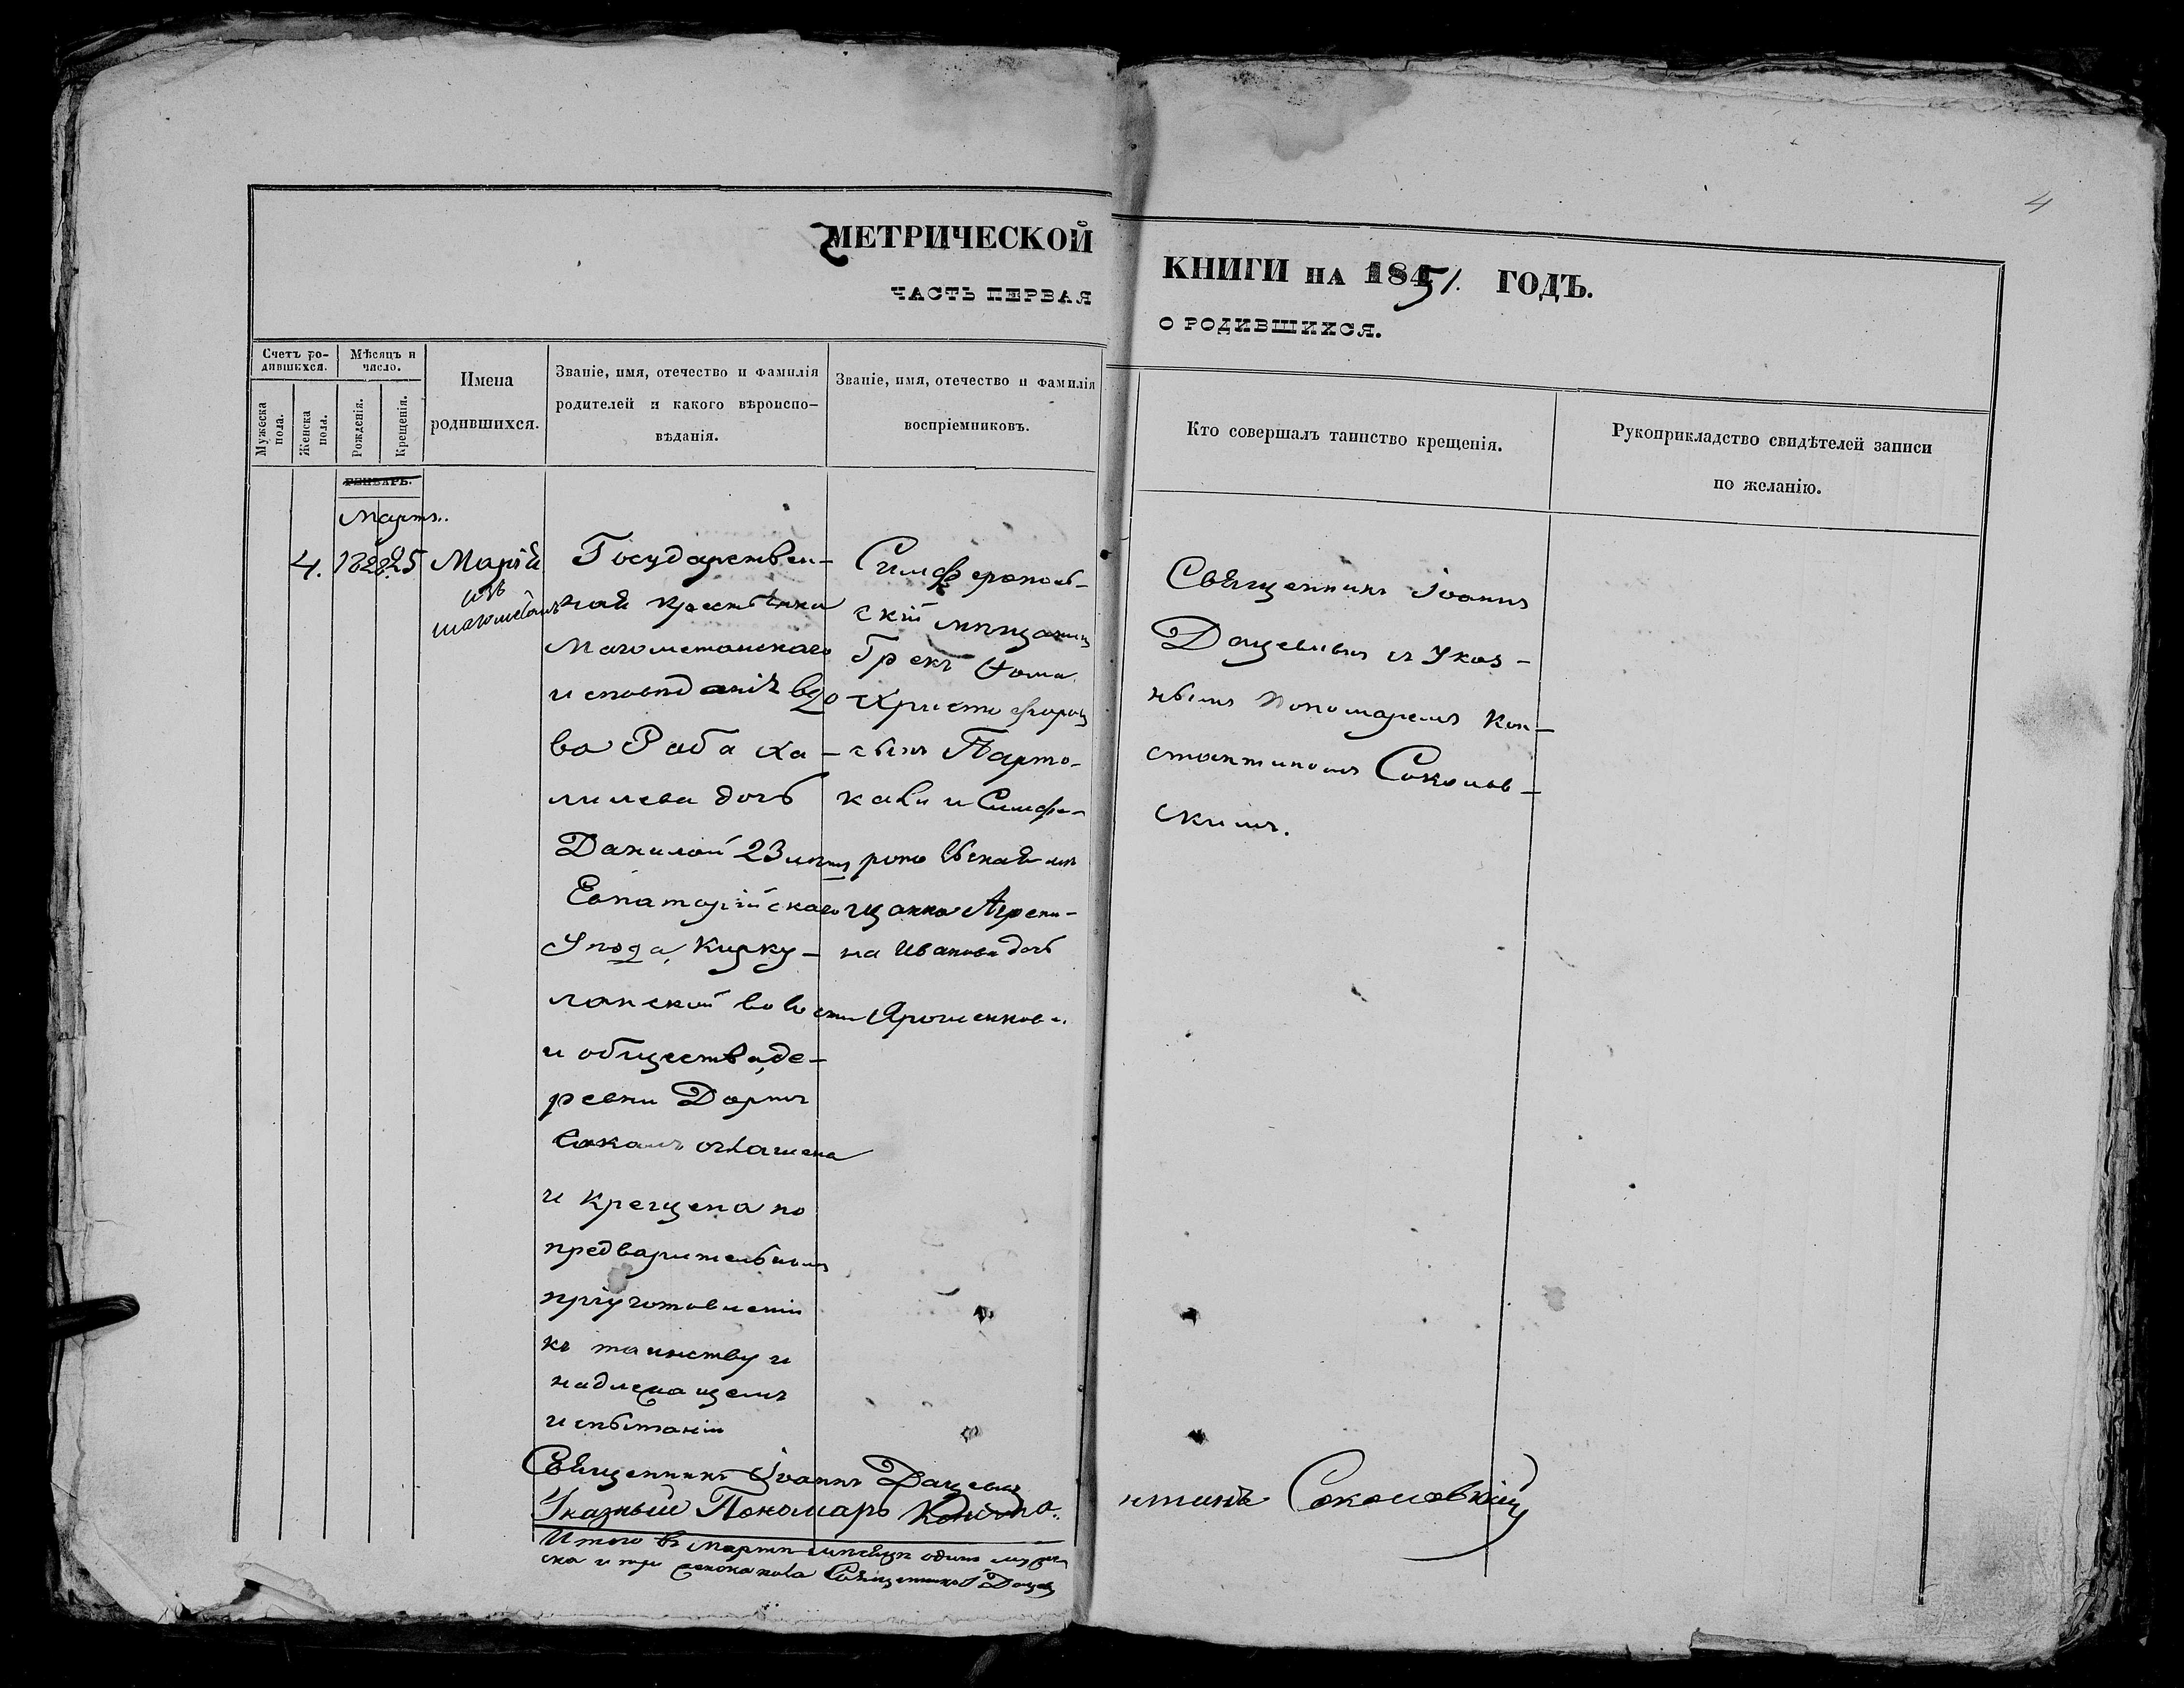 4
МЕТРИЧЕСКОЙ
КНИГИ НА 1851. ГОДЪ.
ЧАСТЬ ПЕРВАЯ
О РОДИВШИХСЯ.
Счетъ ро-
дившихся.
Мѣсяцъ и
число.
Мужеска
пола.
Женска
пола.
Рожденія.
Крещенія.
Имена
родившихся.
Званіе, имя, отечество и фамилія
родителей и какого вѣроиспо-
вѣданія.
Званіе, имя, отечество и фамилія
воспріемниковъ.
Кто совершалъ таинство крещенія.
Рукоприкладство свидѣтелей записи
по желанію.
ГЕНВАРЬ.
Мартъ.
4.
1828.
25
Марія
изъ
Государствен-
ная крестьянка
Магометанскаго
исповѣданія вдо
ва Раба Ха-
лилева дочь
Данилой 23 лѣтъ
Евпаторійскаго
Уѣзда, Кирку-
лацкой волости
и общества, де-
ревни Дортъ
Сакалъ оглашена
и крещена по
предварительномъ
пріуготовленіи
къ таинству и
надлежащемъ
испытаніи
Симферополь-
скій мѣщанинъ
Грекъ Фома
Христофоровъ
сынъ Парто-
кали и Симфе-
ропольская мѣ
щанка Агрепи-
на Иванова дочь
Ярошенкова
Священникъ Іоаннъ
Дацевичъ съ Указ-
нымъ Пономаремъ Кон-
стантиномъ Соколов-
скимъ.
Священникъ Іоаннъ Дацевичъ
Указный Пономарь Конста-
нтинъ Соколовскій
Итого въ Мартѣ мѣсяцѣ одинъ муже
ска и три женска пола Священникъ І Дацев